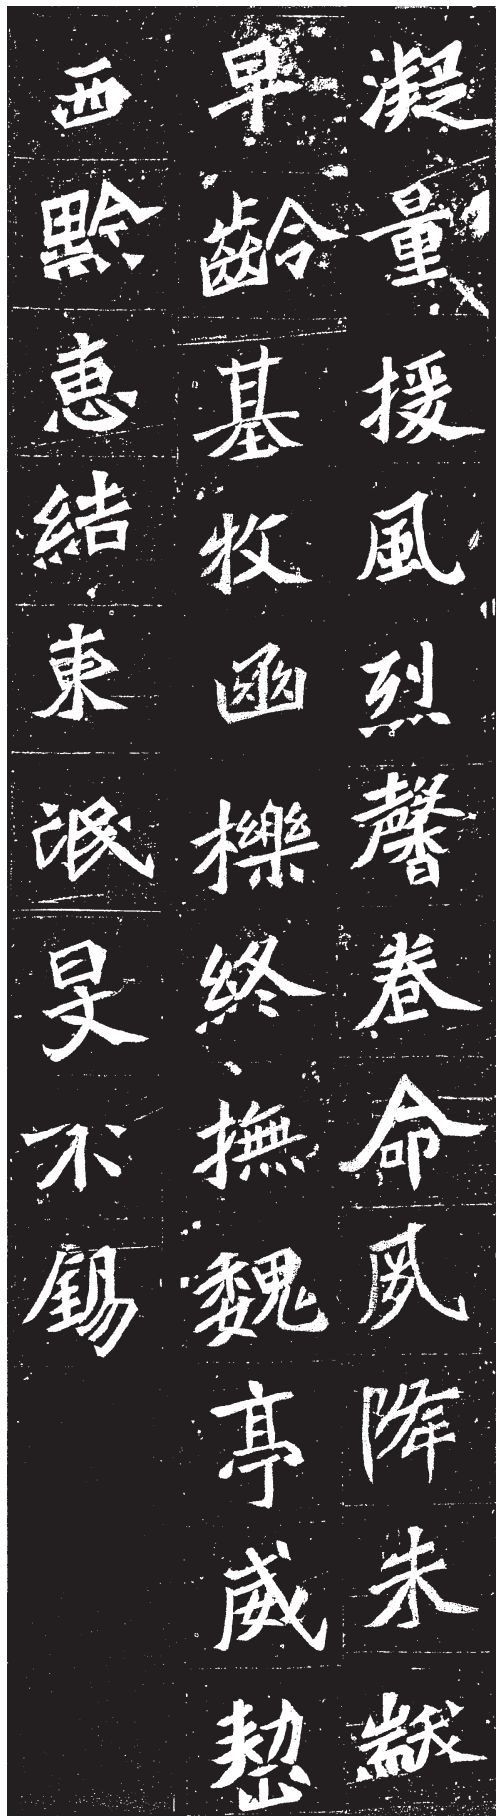 凝量援風烈馨眷命夙降朱黻
早齡基牧函櫟終撫魏亭威
西黔惠結東氓旻不錫